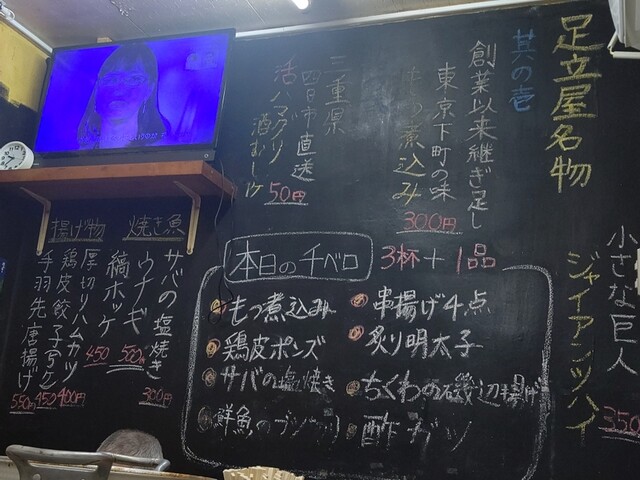 足立屋名物
其の壱
創業以来継ぎ足し
東京下町の味
もつ煮込み
300円
三重県
四日市直送
活ハマグリ
酒むし
50円
小さな巨人
ジャイアンツハイ
350
本日の千ベロ
3杯+1品
もつ煮込み
鶏皮ポンズ
サバの塩焼き
串揚げ4点
炙り明太子
ちくわの磯辺揚げ
酢ガツ
焼き魚
サバの塩焼き
300円
ウナギ
500円
縞ホッケ
450
揚げ物
厚切りハムカツ
400円
鶏皮餃子
450
手羽先唐揚げ
550円